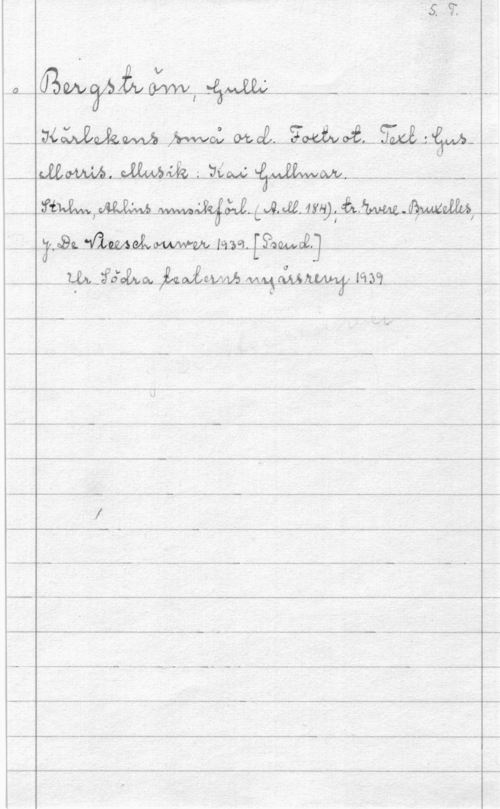 S. T.
Bergström, Gulli
Kärlekens små ord. Foxtrot. Text: Gus
Morris. Musik: Kai Gullmar.
Sthlm, Ahlins musikförl. (A.M. 184), tr. Evere-Bruxelles,
J. De Vleeschouwer 1939. [Pseud.]
Ur Södra teaterns nyårsrevy 1939